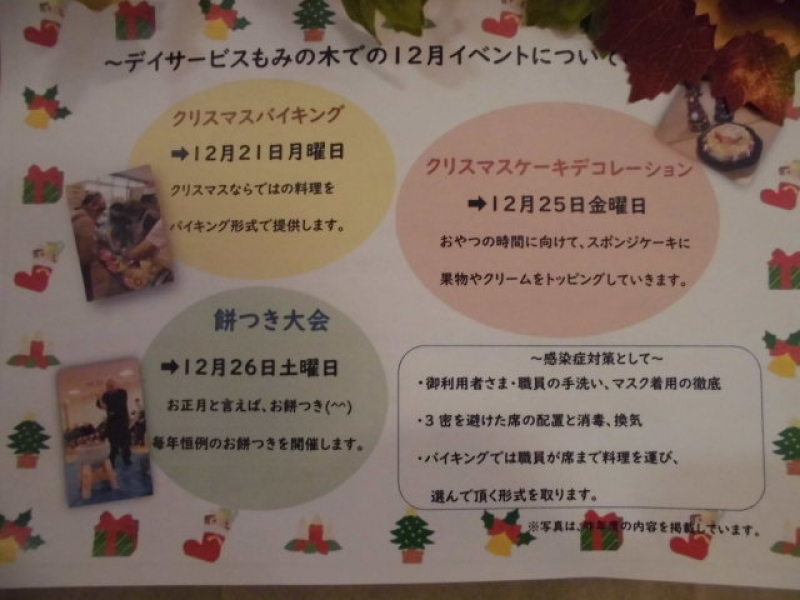 ～デイサービスもみの木での12月イベントについて
クリスマスバイキング
➡12月21日月曜日
クリスマスならではの料理を
バイキング形式で提供します。
クリスマスケーキデコレーション
➡12月25日金曜日
おやつの時間に向けて、スポンジケーキに
果物やクリームをトッピングしていきます。
餅つき大会
➡12月26日土曜日
お正月と言えば、お餅つき(^^)
毎年恒例のお餅つきを開催します。
～感染症対策として～
・御利用者さま・職員の手洗い、マスク着用の徹底
・3密を避けた席の配置と消毒、換気
・バイキングでは職員が席まで料理を運び、
選んで頂く形式を取ります。
※写真は、昨年度の内容を掲載しています。